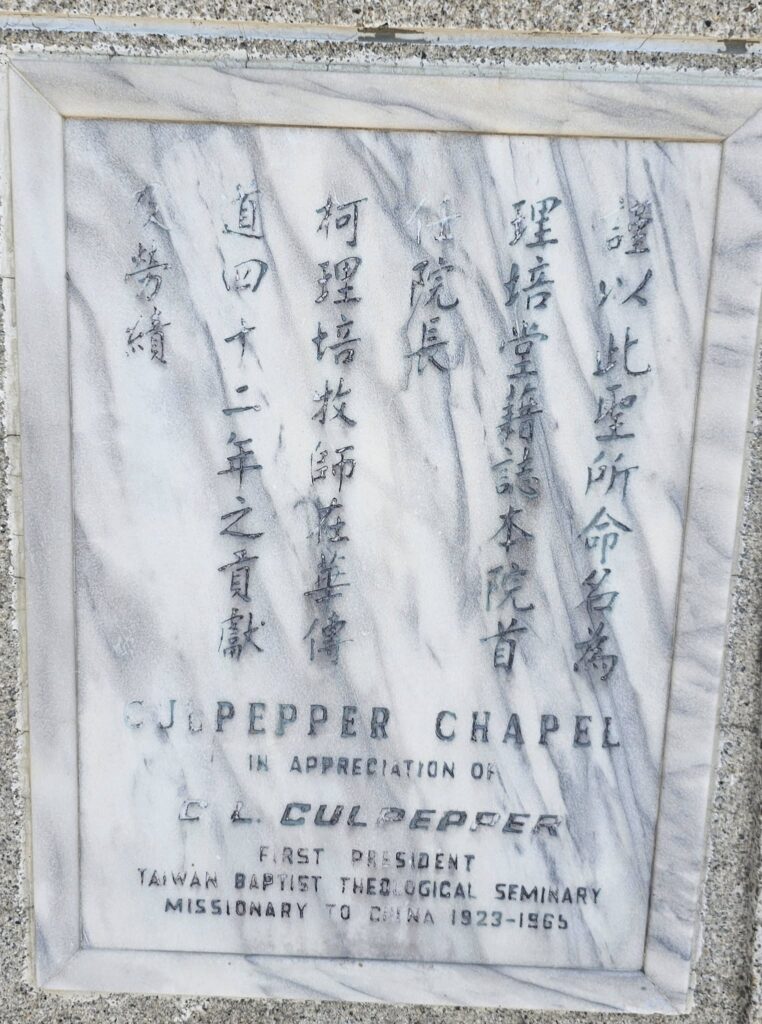 謹以此聖所命名為
理培堂藉誌本院首
任院長
柯理培牧師在華傳
道四十二年之貢獻
及勞績
CULPEPPER CHAPEL
IN APPRECIATION OF
C L. CULPEPPER
FIRST PRESIDENT
TAIWAN BAPTIST THEOLOGICAL SEMINARY
MISSIONARY TO CHINA 1923-1965